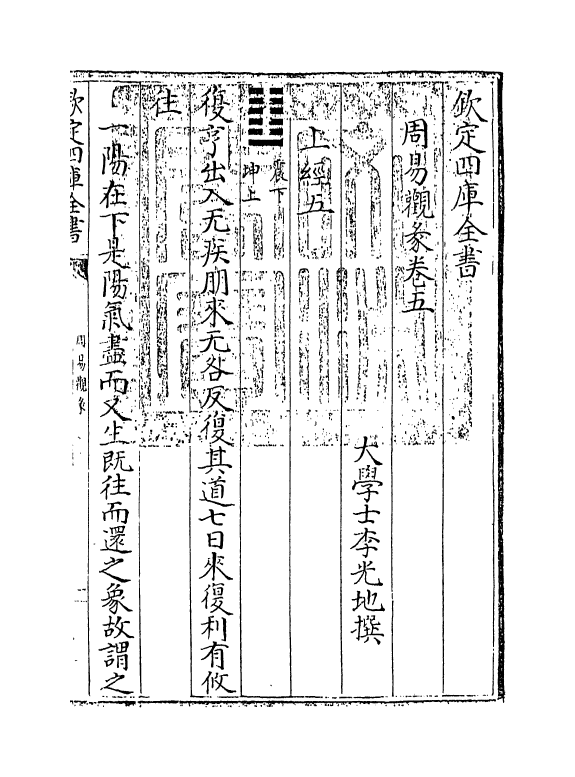 欽定四庫全書
周易觀彖卷五
大學士李光地撰
上經五
震下
坤上
復亨出入无疾朋來无咎反復其道七日來復利有攸
往
一陽在下是陽氣盡而又生既往而還之象故謂之
欽定四庫全書
周易觀彖